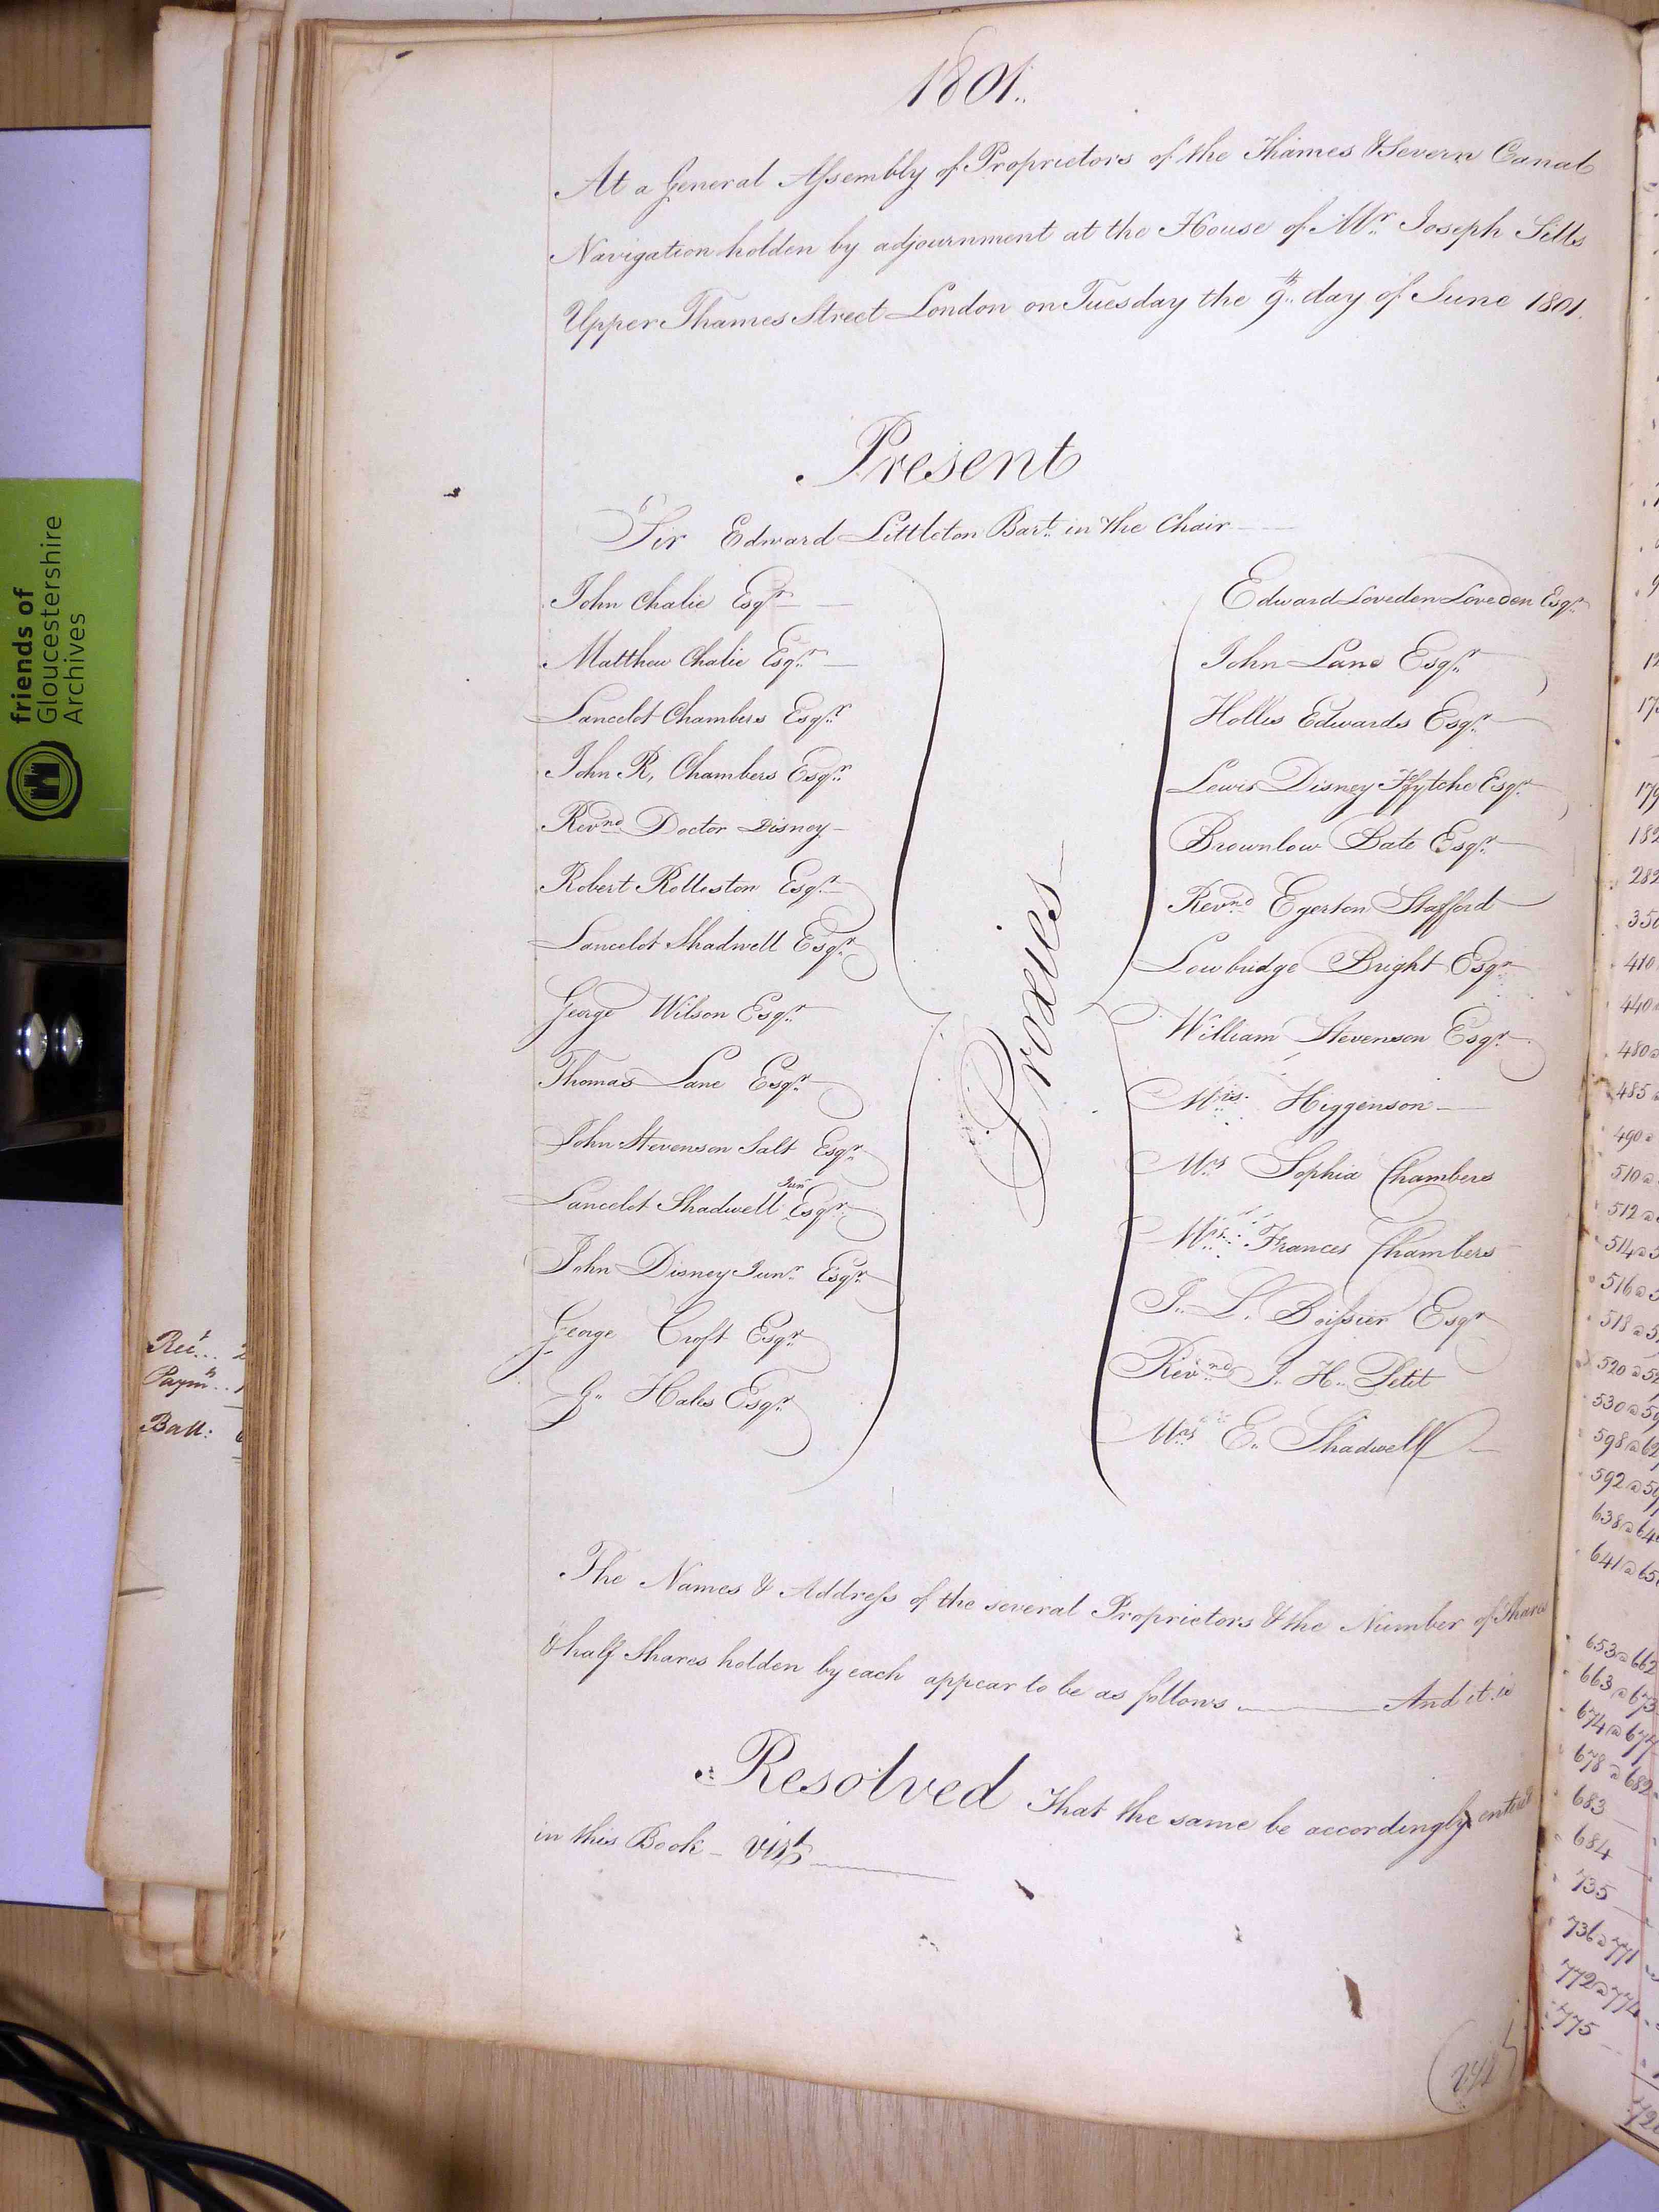 1801.
At a General Assembly of Proprietors of the Thames & Severn Canal
Navigation holden by adjournment at the House of Mr. Joseph Sills
Upper Thames Street London on Tuesday the 9th. day of June 1801.
Present
Sir Edward Littleton Bart. in the Chair
John Chalie Esqr.
Matthew Chalie Esqr.
Lancelot Chambers Esqr.
John R. Chambers Esqr.
Revnd. Doctor Disney
Robert Rolleston Esqr.
Lancelot Shadwell Esqr.
George Wilson Esqr.
Thomas Lane Esqr.
John Stevenson Salt Esqr.
Lancelot Shadwell Junr Esqr.
John Disney Junr. Esqr.
George Croft Esqr.
G. Hales Esqr.
Proxies
Edward Loveden Loveden Esqr.
John Lane Esqr.
Hollis Edwards Esqr.
Lewis Disney Ffytche Esqr.
Brownlow Bate Esqr.
Revnd. Egerton Stafford
Lowbridge Bright Esqr.
William Stevenson Esqr.
Mrs. Higgenson
Mrs Sophia Chambers
Mrs. Frances Chambers
J. L. Boissier Esqr
Revnd. J. H. Petit
Mrs E. Shadwell
The Names & Address of the several Proprietors & the Number of Shares
& half Shares holden by each appear to be as follows And it is
Resolved That the same be accordingly entered
in this Book - vizt.
friends of
Gloucestershire
Archives
Rect..
Paymt..
Ball:
410
440
480
485
490
510
512
514
516
518
520
530
598
592
638
641
653 a 662
663 a 673
674 a 677
678 a 682
683
684
735
736 a 771
772 a 774
775